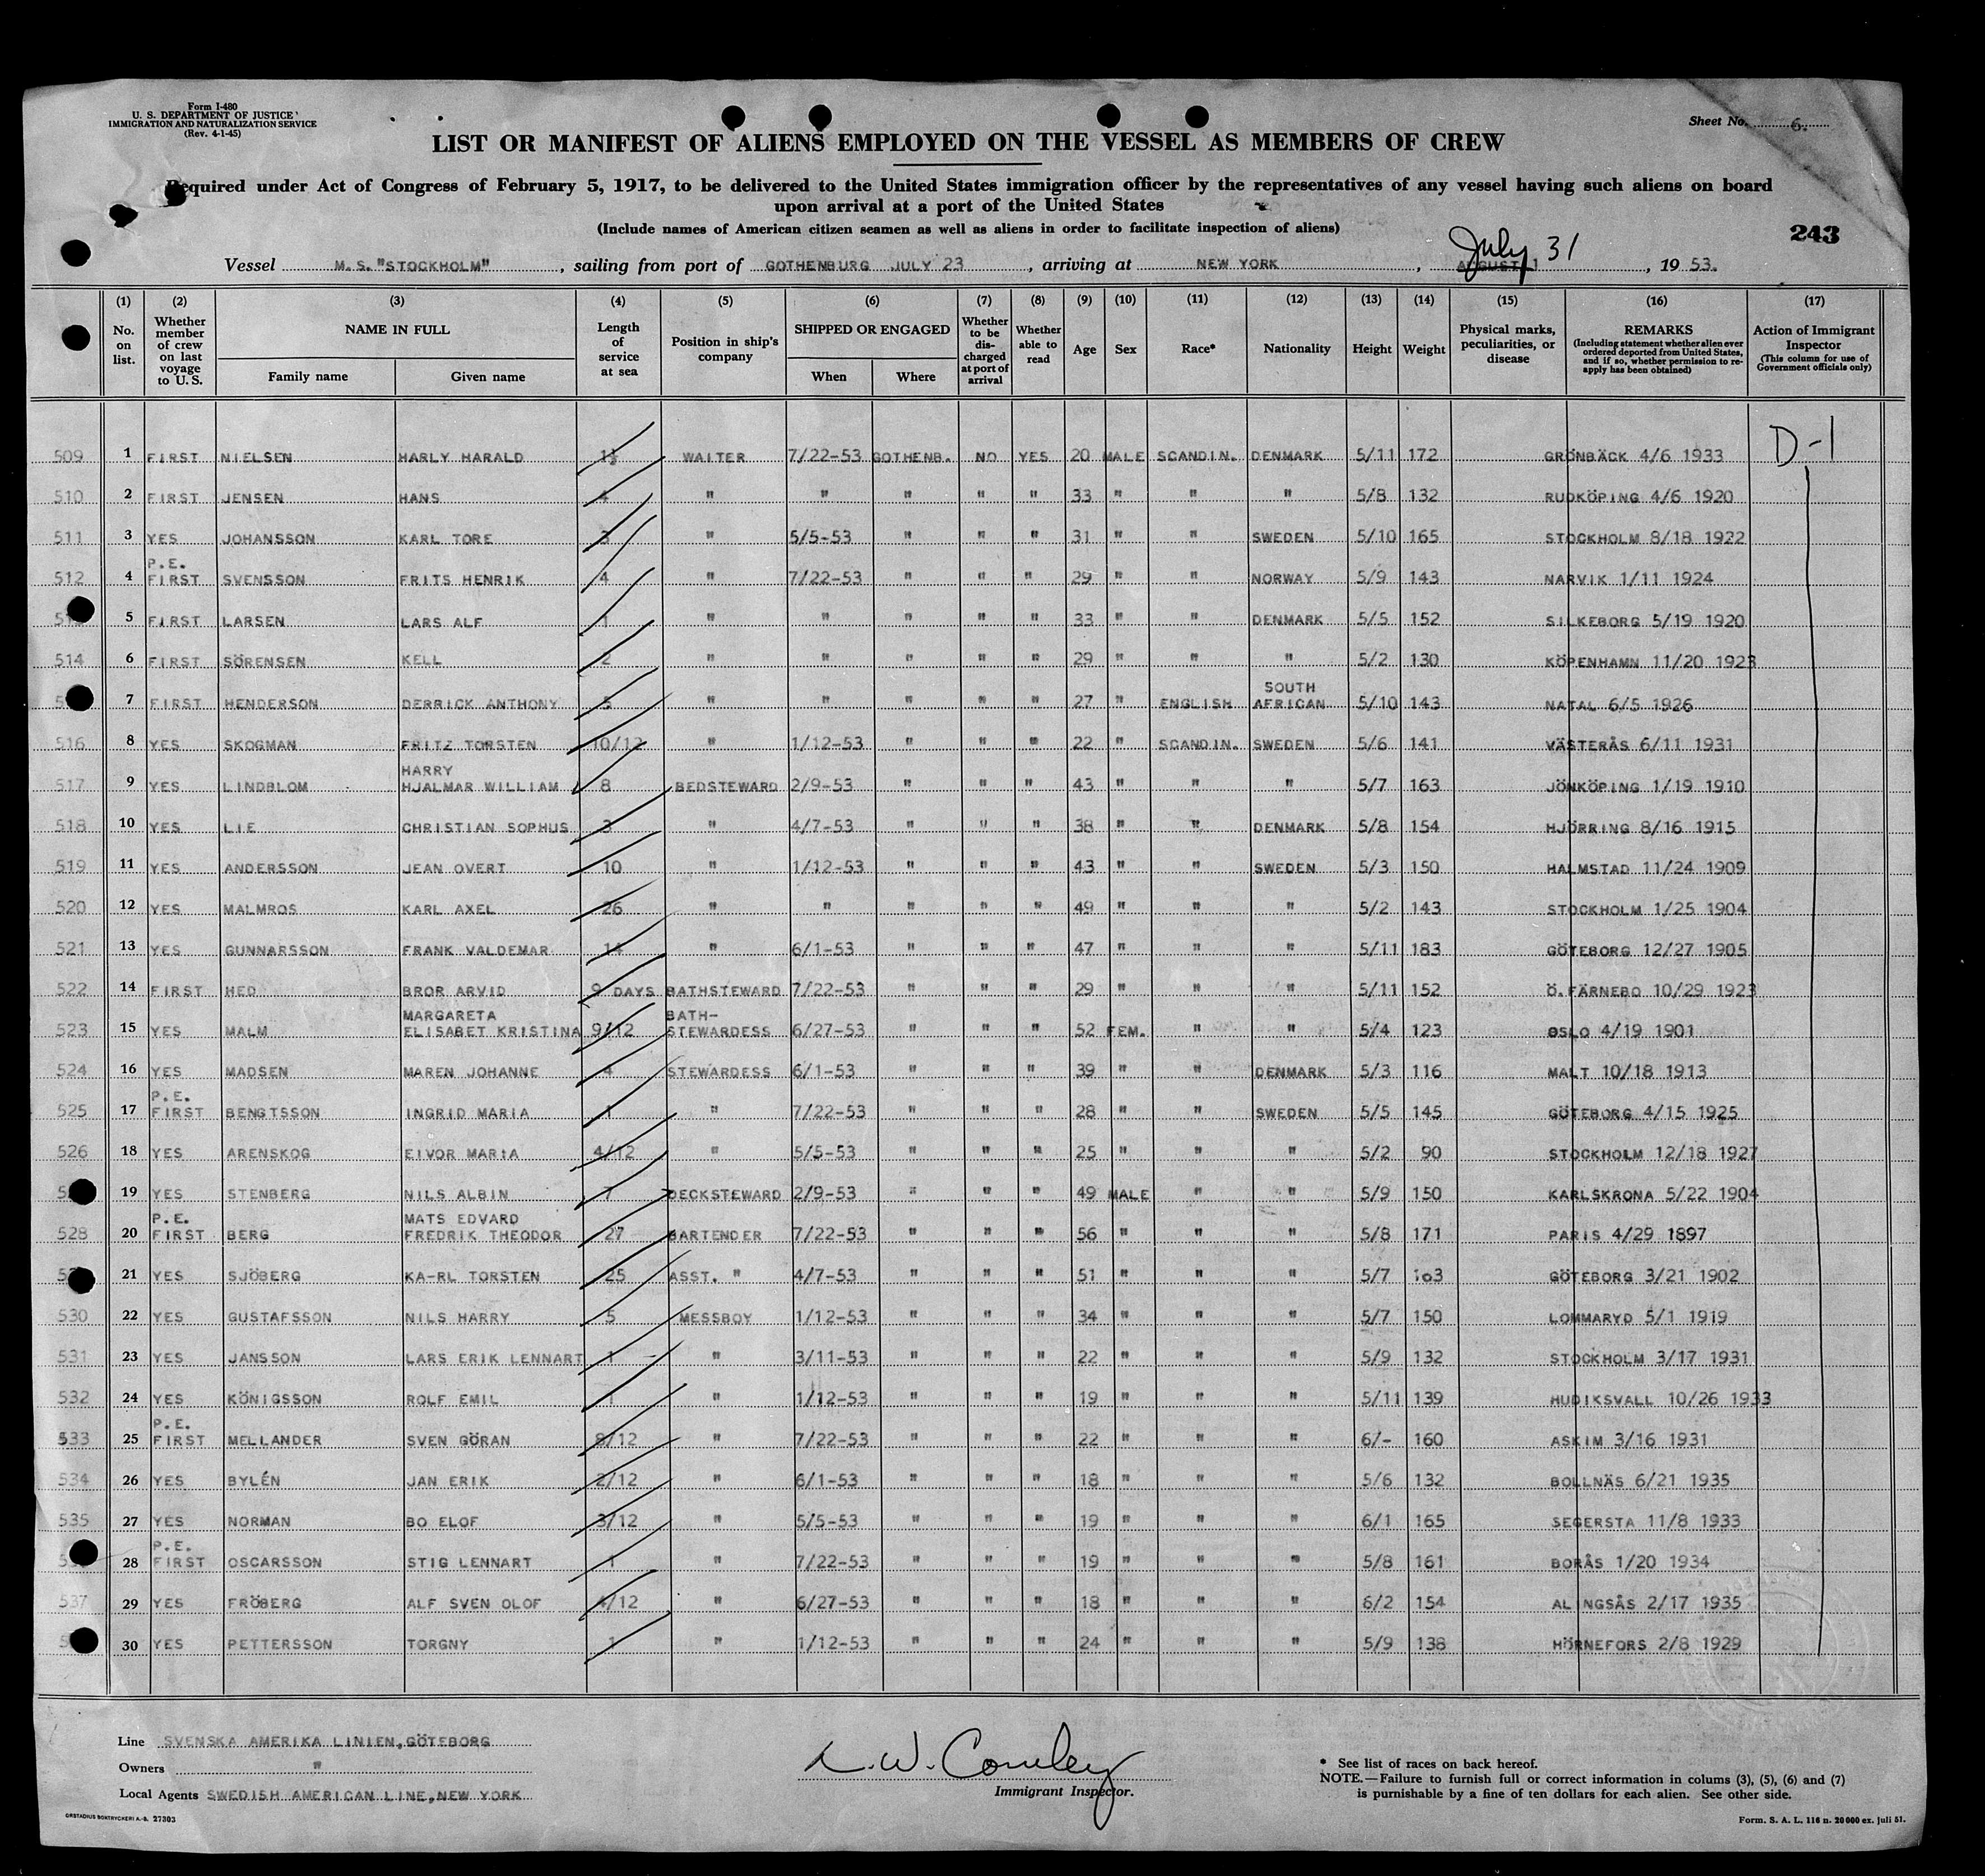 Form I-480
U. S. DEPARTMENT OF JUSTICE
IMMIGRATION AND NATURALIZATION SERVICE
(Rev. 4-1-45)
Sheet No. 6.
LIST OR MANIFEST OF ALIENS EMPLOYED ON THE VESSEL AS MEMBERS OF CREW
Required under Act of Congress of February 5, 1917, to be delivered to the United States immigration officer by the representatives of any vessel having such aliens on board
upon arrival at a port of the United States
(Include names of American citizen seamen as well as aliens in order to facilitate inspection of aliens)
243
July 31
Vessel M.S. "STOCKHOLM", sailing from port of GOTHENBURG JULY 23, arriving at NEW YORK, AUGUST 1, 19 53.
(1) No. on list. (2) Whether member of crew on last voyage to U. S. (3) NAME IN FULL Family name Given name (4) Length of service at sea (5) Position in ship's company (6) SHIPPED OR ENGAGED When Where (7) Whether to be discharged at port of arrival (8) Whether able to read (9) Age (10) Sex (11) Race* (12) Nationality (13) Height (14) Weight (15) Physical marks, peculiarities, or disease (16) REMARKS (Including statement whether alien ever ordered deported from United States, and if so, whether permission to re-apply has been obtained) (17) Action of Immigrant Inspector (This column for use of Government officials only)
509 1 FIRST NIELSEN HARLY HARALD WAITER 7/22-53 GOTHENB. NO YES 20 MALE SCANDIN. DENMARK 5/11 172 GRÖNBÄCK 4/6 1933 D-1
510 2 FIRST JENSEN HANS 4 " " " " " 33 " " " 5/8 132 RUDKÖPING 4/6 1920
511 3 YES JOHANSSON KARL TORE 3 " 5/5-53 " " " 31 " " SWEDEN 5/10 165 STOCKHOLM 8/18 1922
512 4 P.E. FIRST SVENSSON FRITS HENRIK 4 " 7/22-53 " " " 29 " " NORWAY 5/9 143 NARVIK 1/11 1924
5 FIRST LARSEN LARS ALF 1 " " " " " 33 " " DENMARK 5/5 152 SILKEBORG 5/19 1920
514 6 FIRST SÖRENSEN KELL 2 " " " " " 29 " " " 5/2 130 KÖPENHAMN 11/20 1923
7 FIRST HENDERSON DERRICK ANTHONY 5 " " " " " 27 " ENGLISH SOUTH AFRICAN 5/10 143 NATAL 6/5 1926
516 8 YES SKOGMAN FRITZ TORSTEN 10/12 " 1/12-53 " " " 22 " SCANDIN. SWEDEN 5/6 141 VÄSTERÅS 6/11 1931
517 9 YES LINDBLOM HARRY HJALMAR WILLIAM 8 BEDSTEWARD 2/9-53 " " " 43 " " " 5/7 163 JÖNKÖPING 1/19 1910
518 10 YES LIE CHRISTIAN SOPHUS 3 " 4/7-53 " " " 38 " " DENMARK 5/8 154 HJÖRRING 8/16 1915
519 11 YES ANDERSSON JEAN OVERT 10 " 1/12-53 " " " 43 " " SWEDEN 5/3 150 HALMSTAD 11/24 1909
520 12 YES MALMROS KARL AXEL 26 " " " " " 49 " " " 5/2 143 STOCKHOLM 1/25 1904
521 13 YES GUNNARSSON FRANK VALDEMAR 14 " 6/1-53 " " " 47 " " " 5/11 183 GÖTEBORG 12/27 1905
522 14 FIRST HED BROR ARVID 9 DAYS BATHSTEWARD 7/22-53 " " " 29 " " " 5/11 152 Ö.FÄRNEBO 10/29 1923
523 15 YES MALM MARGARETA ELISABET KRISTINA 9/12 BATH-STEWARDESS 6/27-53 " " " 52 FEM. " " 5/4 123 OSLO 4/19 1901
524 16 YES MADSEN MAREN JOHANNE 4 STEWARDESS 6/1-53 " " " 39 " " DENMARK 5/3 116 MALT 10/18 1913
525 17 P.E. FIRST BENGTSSON INGRID MARIA 1 " 7/22-53 " " " 28 " " SWEDEN 5/5 145 GÖTEBORG 4/15 1925
526 18 YES ARENSKOG EIVOR MARIA 4/12 " 5/5-53 " " " 25 " " " 5/2 90 STOCKHOLM 12/18 1927
19 YES STENBERG NILS ALBIN 7 DECKSTEWARD 2/9-53 " " " 49 MALE " " 5/9 150 KARLSKRONA 5/22 1904
528 20 P.E. FIRST BERG MATS EDVARD FREDRIK THEODOR 27 BARTENDER 7/22-53 " " " 56 " " " 5/8 171 PARIS 4/29 1897
21 YES SJÖBERG KA-RL TORSTEN 25 ASST. " 4/7-53 " " " 51 " " " 5/7 163 GÖTEBORG 3/21 1902
530 22 YES GUSTAFSSON NILS HARRY 5 MESSBOY 1/12-53 " " " 34 " " " 5/7 150 LOMMARYD 5/1 1919
531 23 YES JANSSON LARS ERIK LENNART 1 " 3/11-53 " " " 22 " " " 5/9 132 STOCKHOLM 3/17 1931
532 24 YES KÖNIGSSON ROLF EMIL 1 " 1/12-53 " " " 19 " " " 5/11 139 HUDIKSVALL 10/26 1933
533 25 P.E. FIRST MELLANDER SVEN GÖRAN 8/12 " 7/22-53 " " " 22 " " " 6/- 160 ASKIM 3/16 1931
534 26 YES BYLÉN JAN ERIK 2/12 " 6/1-53 " " " 18 " " " 5/6 132 BOLLNÄS 6/21 1935
535 27 YES NORMAN BO ELOF 3/12 " 5/5-53 " " " 19 " " " 6/1 165 SEGERSTA 11/8 1933
28 P.E. FIRST OSCARSSON STIG LENNART 1 " 7/22-53 " " " 19 " " " 5/8 161 BORÅS 1/20 1934
537 29 YES FRÖBERG ALF SVEN OLOF 4/12 " 6/27-53 " " " 18 " " " 6/2 154 ALINGSÅS 2/17 1935
30 YES PETTERSSON TORGNY 1 " 1/12-53 " " " 24 " " " 5/9 138 HÖRNEFORS 2/8 1929
Line SVENSKA AMERIKA LINIEN, GÖTEBORG
Owners "
Local Agents SWEDISH AMERICAN LINE, NEW YORK
ORSTADIUS BOKTRYCKERI A.-B. 27303
Immigrant Inspector.
* See list of races on back hereof.
NOTE.—Failure to furnish full or correct information in colums (3), (5), (6) and (7)
is punishable by a fine of ten dollars for each alien. See other side.
Form. S. A. L. 116 n. 20000 ex. juli 51.